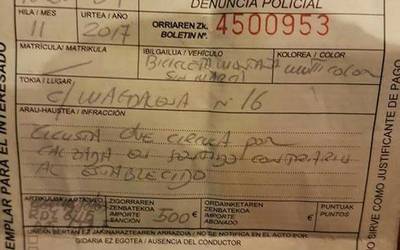 DENUNCIA POLICIAL
HILA / MES URTEA / AÑO ORRIAREN Zk. 4500953
11 2017 BOLETIN Nº.
MATRICULA / MATRIKULA IBILGAILUA / VEHÍCULO KOLOREA / COLOR
BICICLETA MONTAÑA MULTICOLOR
SIN MARCA
TOKIA / LUGAR
C/ MAGDALENA Nº 16
ARAU-HAUSTEA / INFRACCIÓN
CICLISTA QUE CIRCULA POR
CALZADA EN SENTIDO CONTRARIO
AL ESTABLECIDO
ARTIKULUA / ARTICULO ZIGORRAREN ZENBATEKOA ORDAINKETAREN ZENBATEKOA PUNTUAK
IMPORTE SANCIÓN 500 € IMPORTE ABONADO € PUNTOS
UNEAN BERTAN EZ JAKINARAZTEAREN ARRAZOIA / NO SE NOTIFICA EN EL ACTO POR:
GIDARIA EZ EGOTEA / AUSENCIA DEL CONDUCTOR
EMPLAR PARA EL INTERESADO
NO SIRVE COMO JUSTIFICANTE DE PAGO